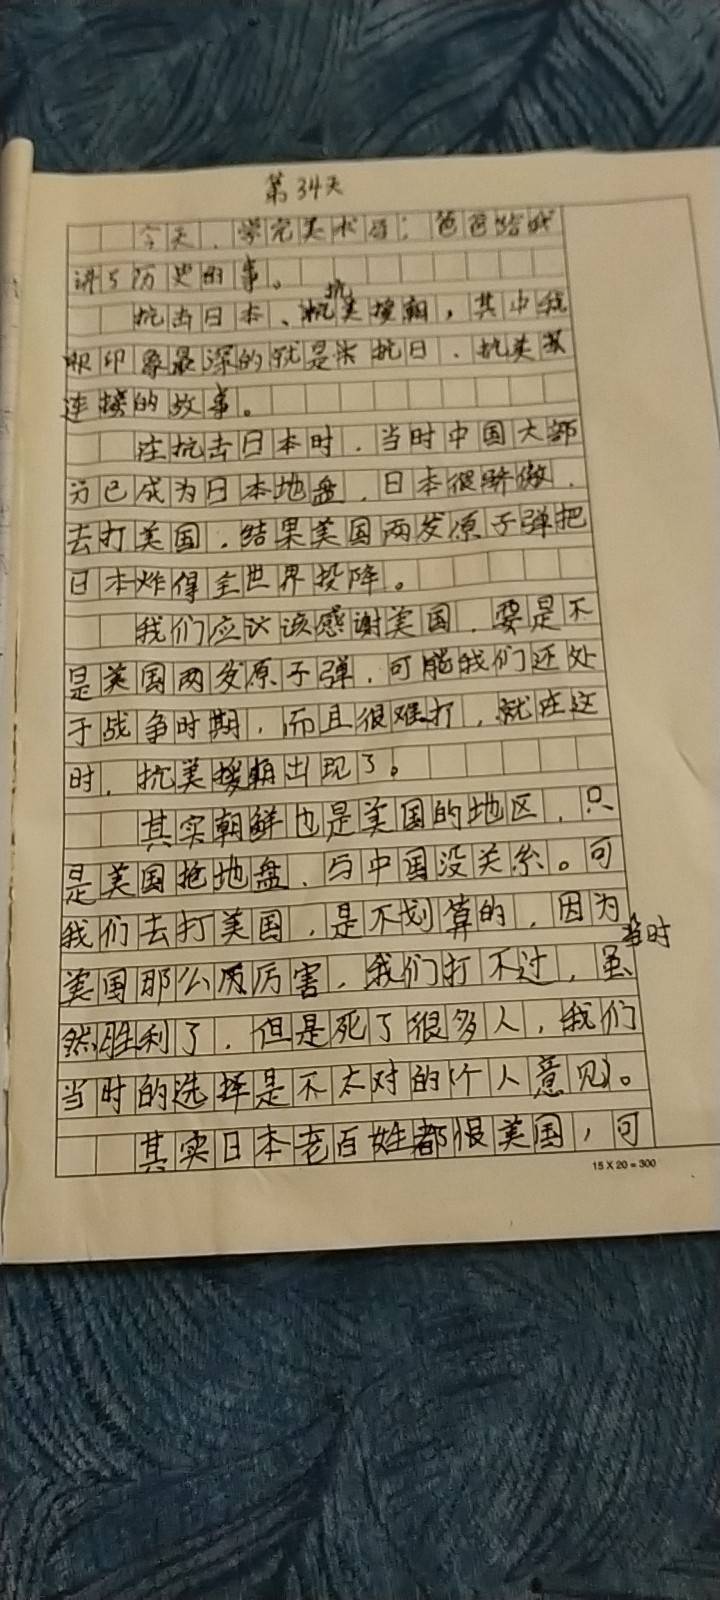 第34天
今天,学完美术后;爸爸给我
讲了历史的事。
抗
抗击日本、抗美援朝,其中我
印象最深的就是 抗日、抗美
连接的故事。
在抗击日本时,当时中国大部
分已成为日本地盘,日本很骄傲,
去打美国,结果美国两发原子弹把
日本炸得全世界投降。
我们应该感谢美国,要是不
是美国两发原子弹,可能我们还处
于战争时期,而且很难打,就在这
时,抗美援朝出现了。
其实朝鲜也是美国的地区,只
是美国抢地盘,与中国没关系。可
我们去打美国,是不划算的,因为
当时
美国那么厉害,我们打不过,虽
然胜利了,但是死了很多人,我们
当时的选择是不太对的(个人意见)。
其实日本老百姓都恨美国,可
15 X 20 = 300